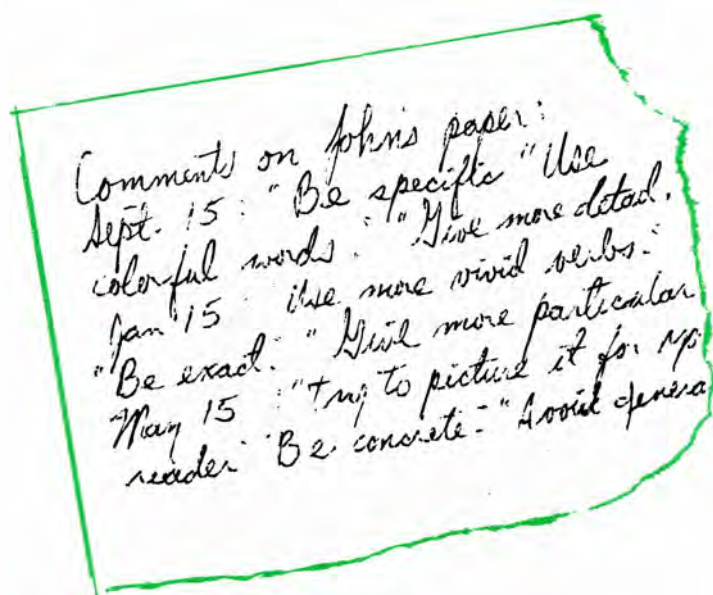 Comments on John's paper:
Sept. 15: "Be specific" "Use
colorful words." "Give more detail.
Jan 15 Use more vivid verbs."
"Be exact." "Give more particular
May 15: "Try to picture it for
reader" Be concrete." "Avoid genera